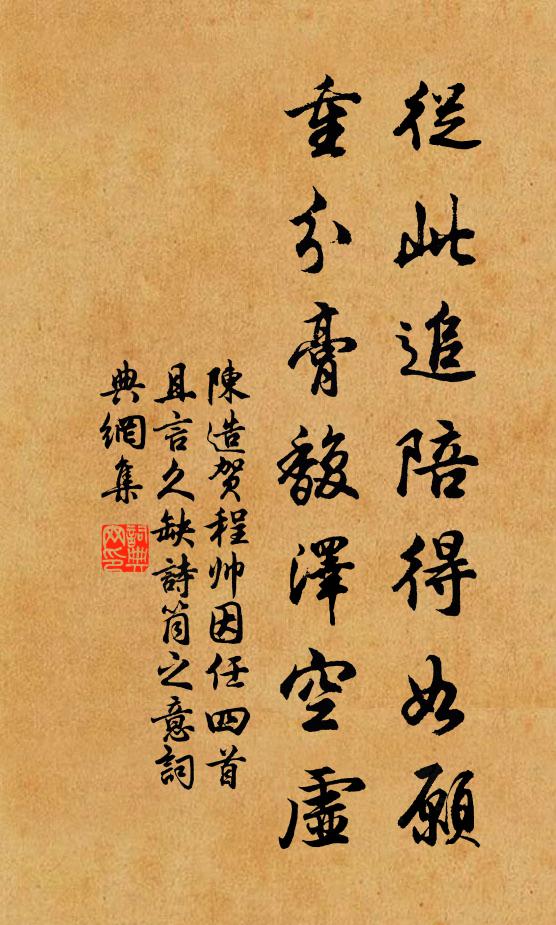 從此追陪得如願
重分膏馥澤空虛
陳造賀程帅因任四首
且言久缺詩筒之意詞
典網集
詞典
网印